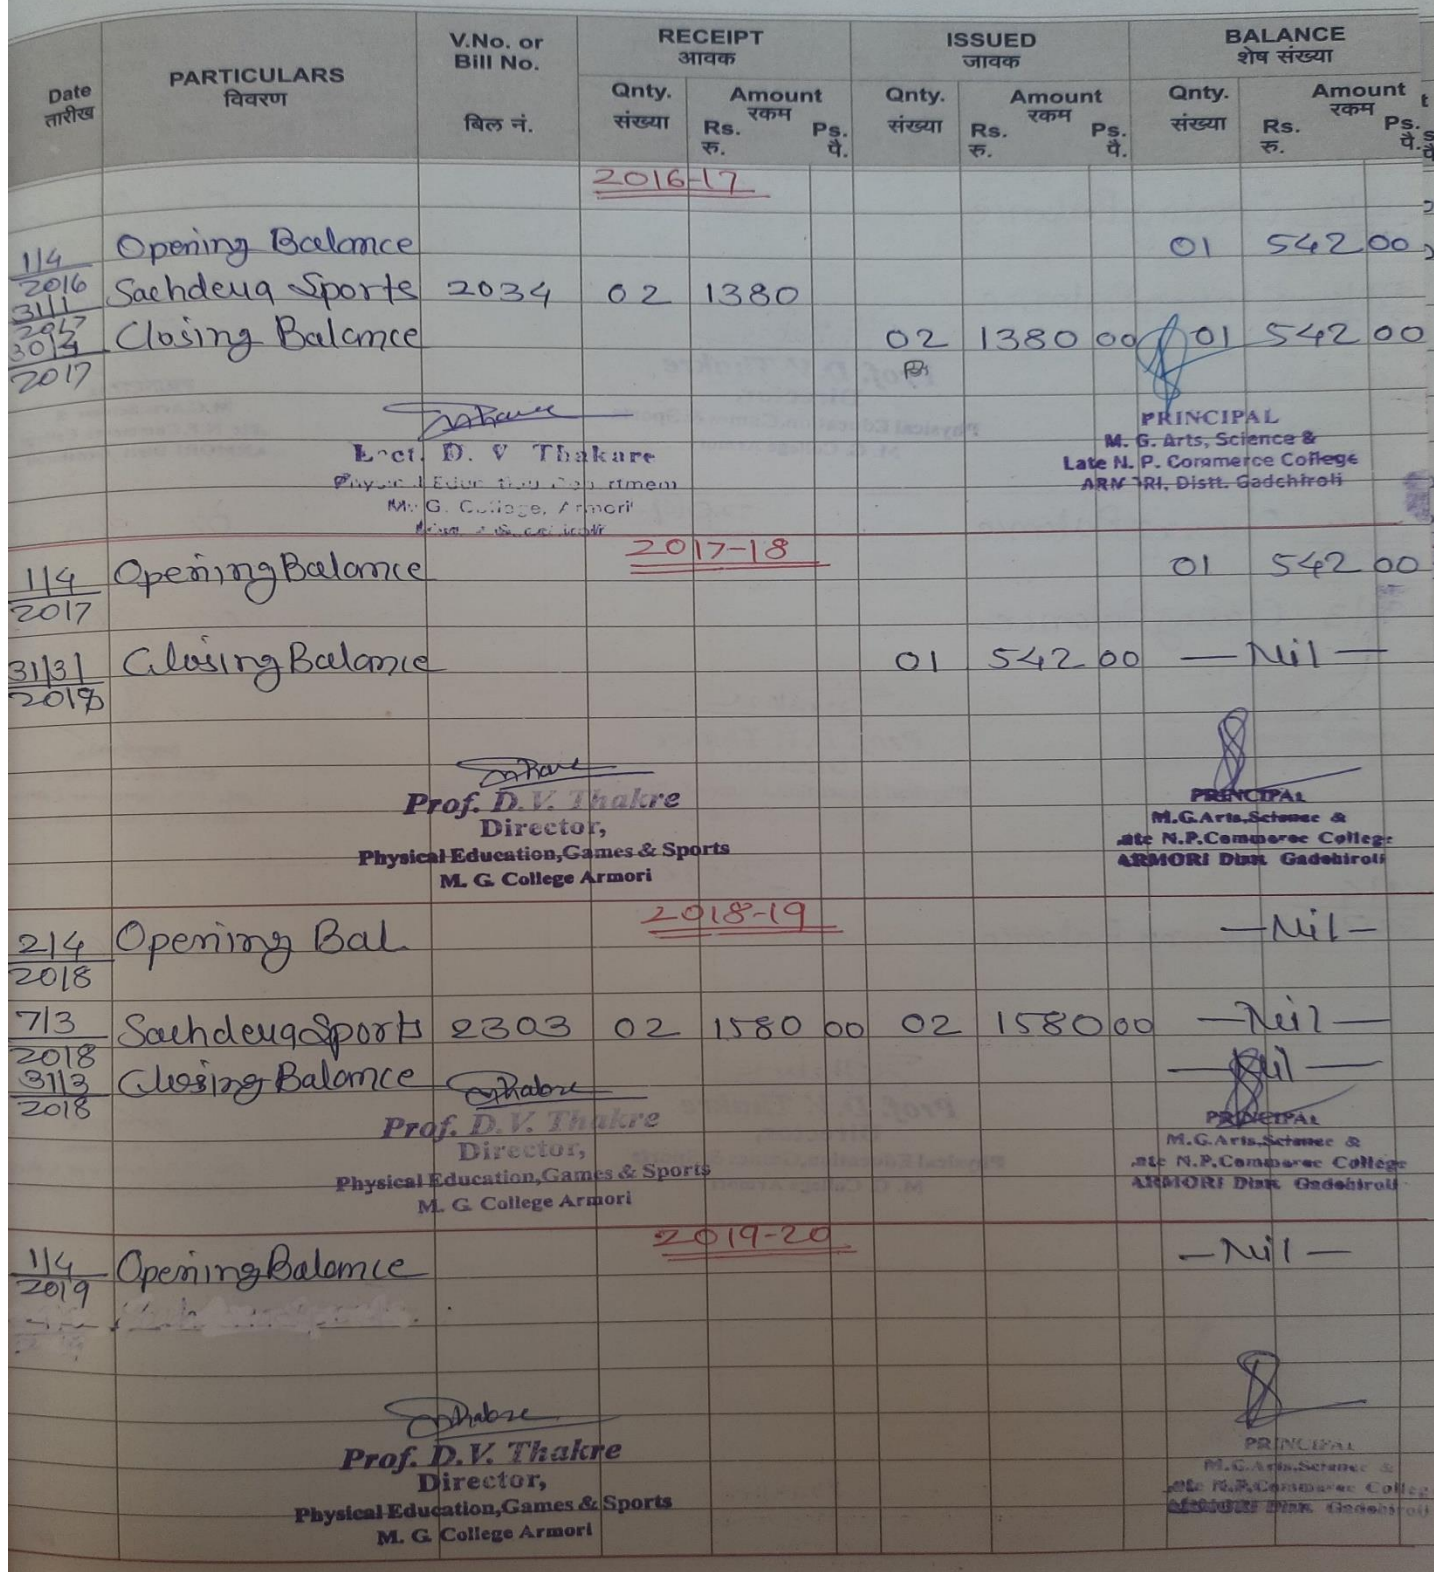 Date तारीख PARTICULARS विवरण V.No. or Bill No. बिल नं. RECEIPT आवक ISSUED जावक BALANCE शेष संख्या
Qnty. संख्या Amount रकम Rs. रु. Ps. पै. Qnty. संख्या Amount रकम Rs. रु. Ps. पै. Qnty. संख्या Amount रकम Rs. रु. Ps. पै.
2016-17
1/4 2016 Opening Balance 01 542 00
31/1 2017 Sachdeva Sports 2034 02 1380
2017 Closing Balance 02 1380 00 01 542 00
Lect. D. V Thakare
M. G. College, Armori
PRINCIPAL
M. G. Arts, Science &
Late N. P. Commerce College
ARMORI, Distt. Gadchiroli
2017-18
1/4 2017 Opening Balance 01 542 00
31/3/ 2018 Closing Balance 01 542 00 — Nil —
Prof. D.V. Thakre
Director,
Physical Education,Games & Sports
M. G. College Armori
PRINCIPAL
M.G.Arts,Science &
ate N.P.Commerce College
ARMORI Distt. Gadchiroli
2018-19
2/4 2018 Opening Bal — Nil —
7/3 2018 Sachdeva Sports 2303 02 1580 00 02 1580 00 — Nil —
31/3 2018 Closing Balance — Nil —
Prof. D.V. Thakre
Director,
Physical Education,Games & Sports
M. G. College Armori
PRINCIPAL
M.G.Arts,Science &
ate N.P.Commerce College
ARMORI Distt. Gadchiroli
2019-20
1/4 2019 Opening Balance — Nil —
Prof. D.V. Thakre
Director,
Physical Education,Games & Sports
M. G. College Armori
PRINCIPAL
M.G.Arts,Science &
ate N.P.Commerce Colleg